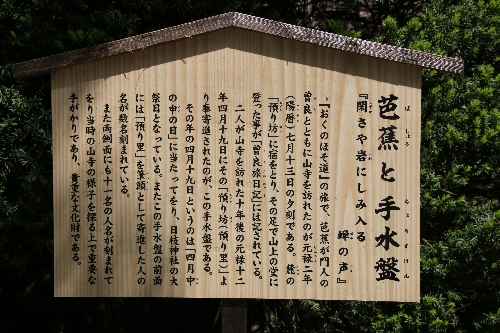 芭蕉と手水盤
ばしょう
ちょうずばん
『閑さや岩にしみ入る
蝉の声』
『おくのほそ道』の旅で、芭蕉が門人の
曽良とともに山寺を訪れたのが元禄二年
(陽暦)七月十三日の夕刻である。麓の
「預り坊」に宿をとり、その足で山上の堂に
登った事が「曽良旅日記」には記されている。
二人が山寺を訪れた十年後の元禄十二
年四月十九日にその「預り坊(預り里)」よ
り奉寄進されたのが、この手水盤である。
その年の四月十九日というのは「四月中
の中の日」に当たってをり、日枝神社の大
祭日となっている。またこの手水盤の前面
には「預り里」を筆頭として寄進した人の
名が数名刻まれている。
また両側面にも十一名の人名が刻まれて
をり当時の山寺の様子を探る上で重要な
手がかりであり、貴重な文化財である。